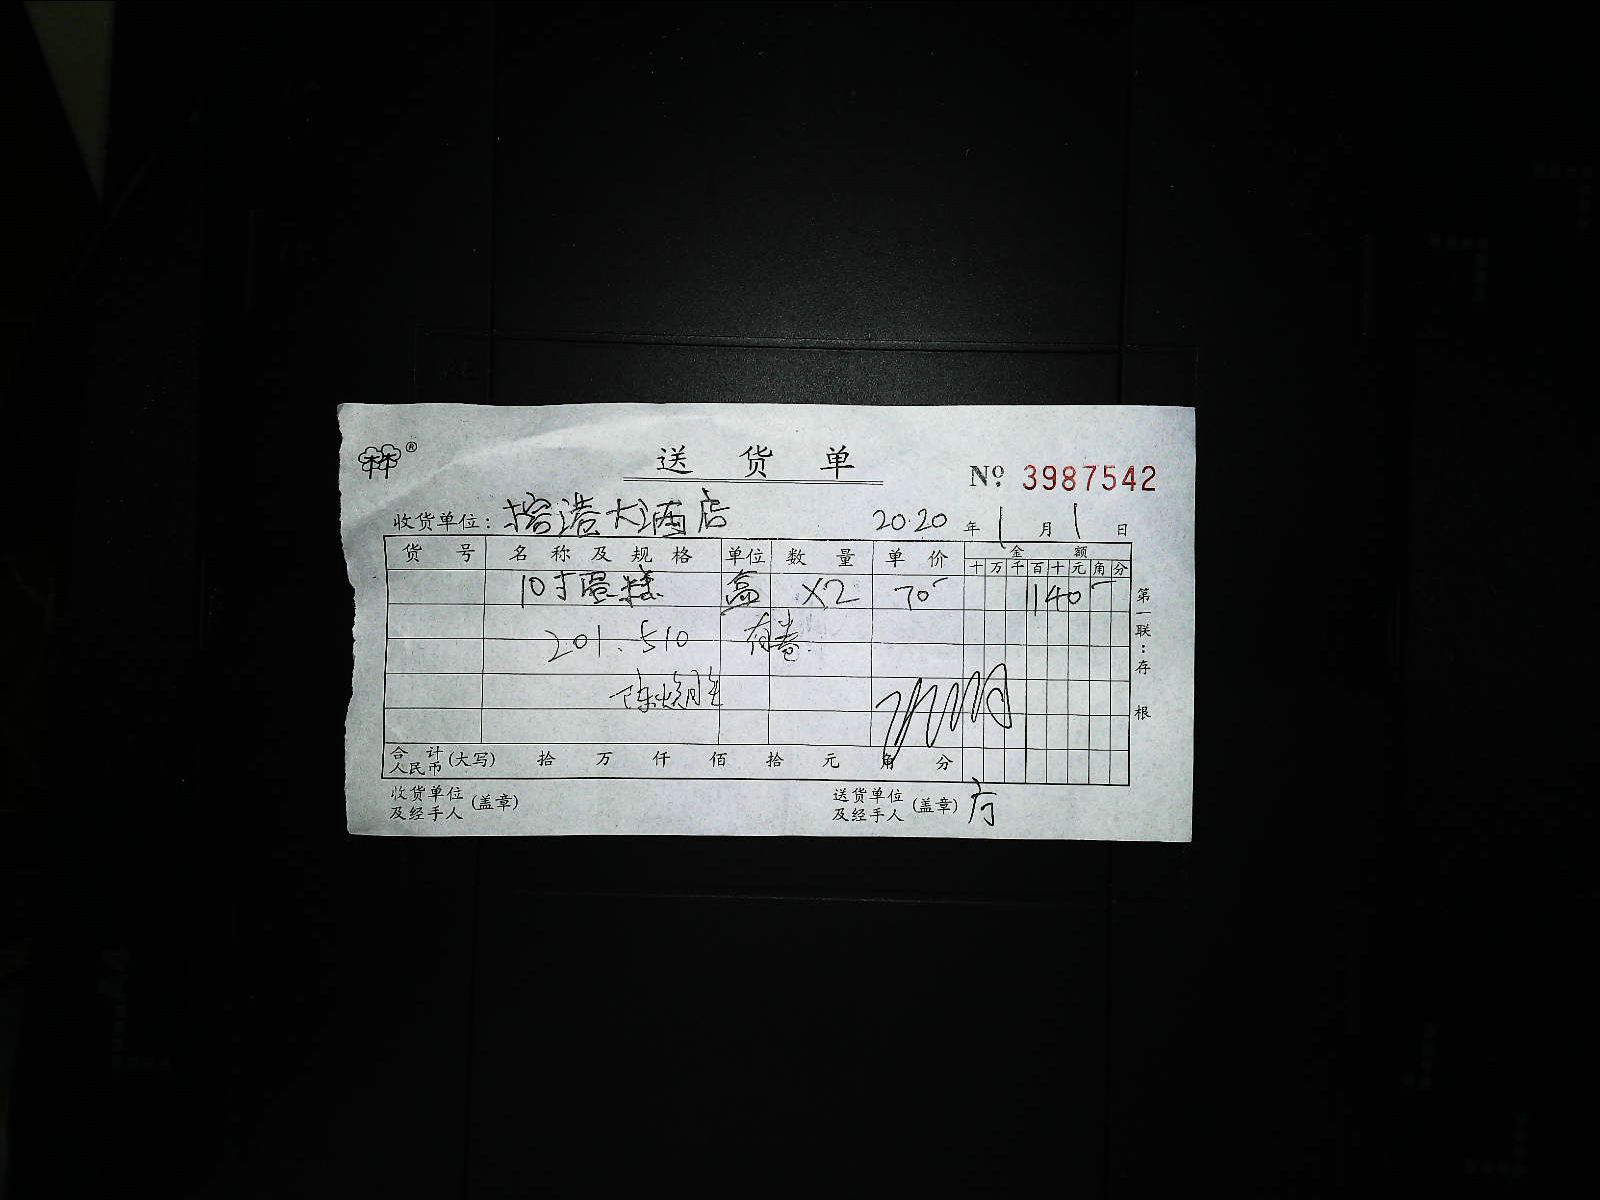 林®
送货单
№ 3987542
收货单位: 榕港大酒店 2020年1月1日
货号 名称及规格 单位 数量 单价 金额
十万千百十元角分
10寸蛋糕 盒 X2 70 140
201.510 有卷
陈焕胜
合计人民币(大写) 拾 万 仟 佰 拾 元 角 分
收货单位及经手人(盖章) 送货单位及经手人(盖章)
第一联:存根